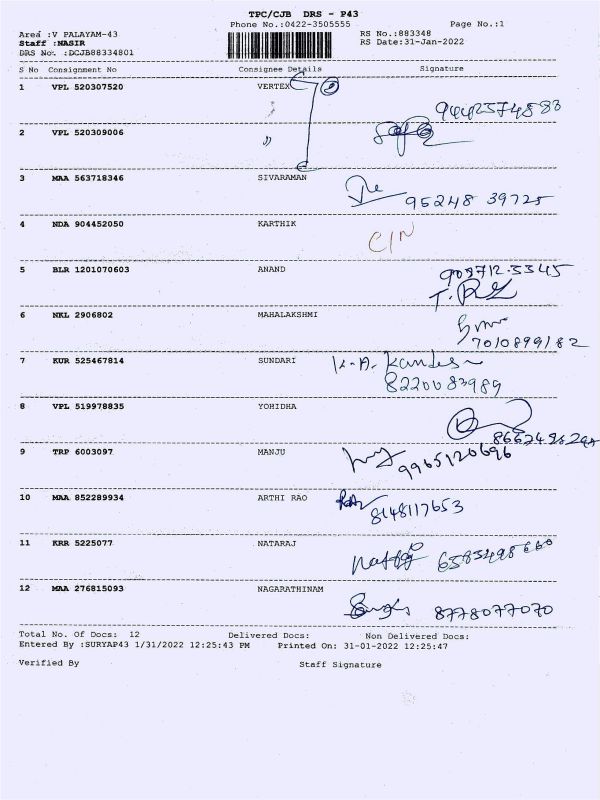 TPC/CJB DRS - P43
Phone No.:0422-3505555 Page No.:1
Area :V PALAYAM-43 RS No.:883348
Staff :NASIR RS Date:31-Jan-2022
DRS No. :DCJB88334801
S No Consignment No Consignee Details Signature
1 VPL 520307520 VERTEX 2
9442574583
2 VPL 520309006 "
3 MAA 563718346 SIVARAMAN
95248 39725
4 NDA 904452050 KARTHIK
C/N
5 BLR 1201070603 ANAND
6 NKL 2906802 MAHALAKSHMI
7010899182
7 KUR 525467814 SUNDARI
8220083989
8 VPL 519978835 YOHIDHA
9 TRP 6003097 MANJU
9965120696
10 MAA 852289934 ARTHI RAO
8148117653
11 KRR 5225077 NATARAJ
12 MAA 276815093 NAGARATHINAM
8778077070
Total No. Of Docs: 12 Delivered Docs: Non Delivered Docs:
Entered By :SURYAP43 1/31/2022 12:25:43 PM Printed On: 31-01-2022 12:25:47
Verified By Staff Signature